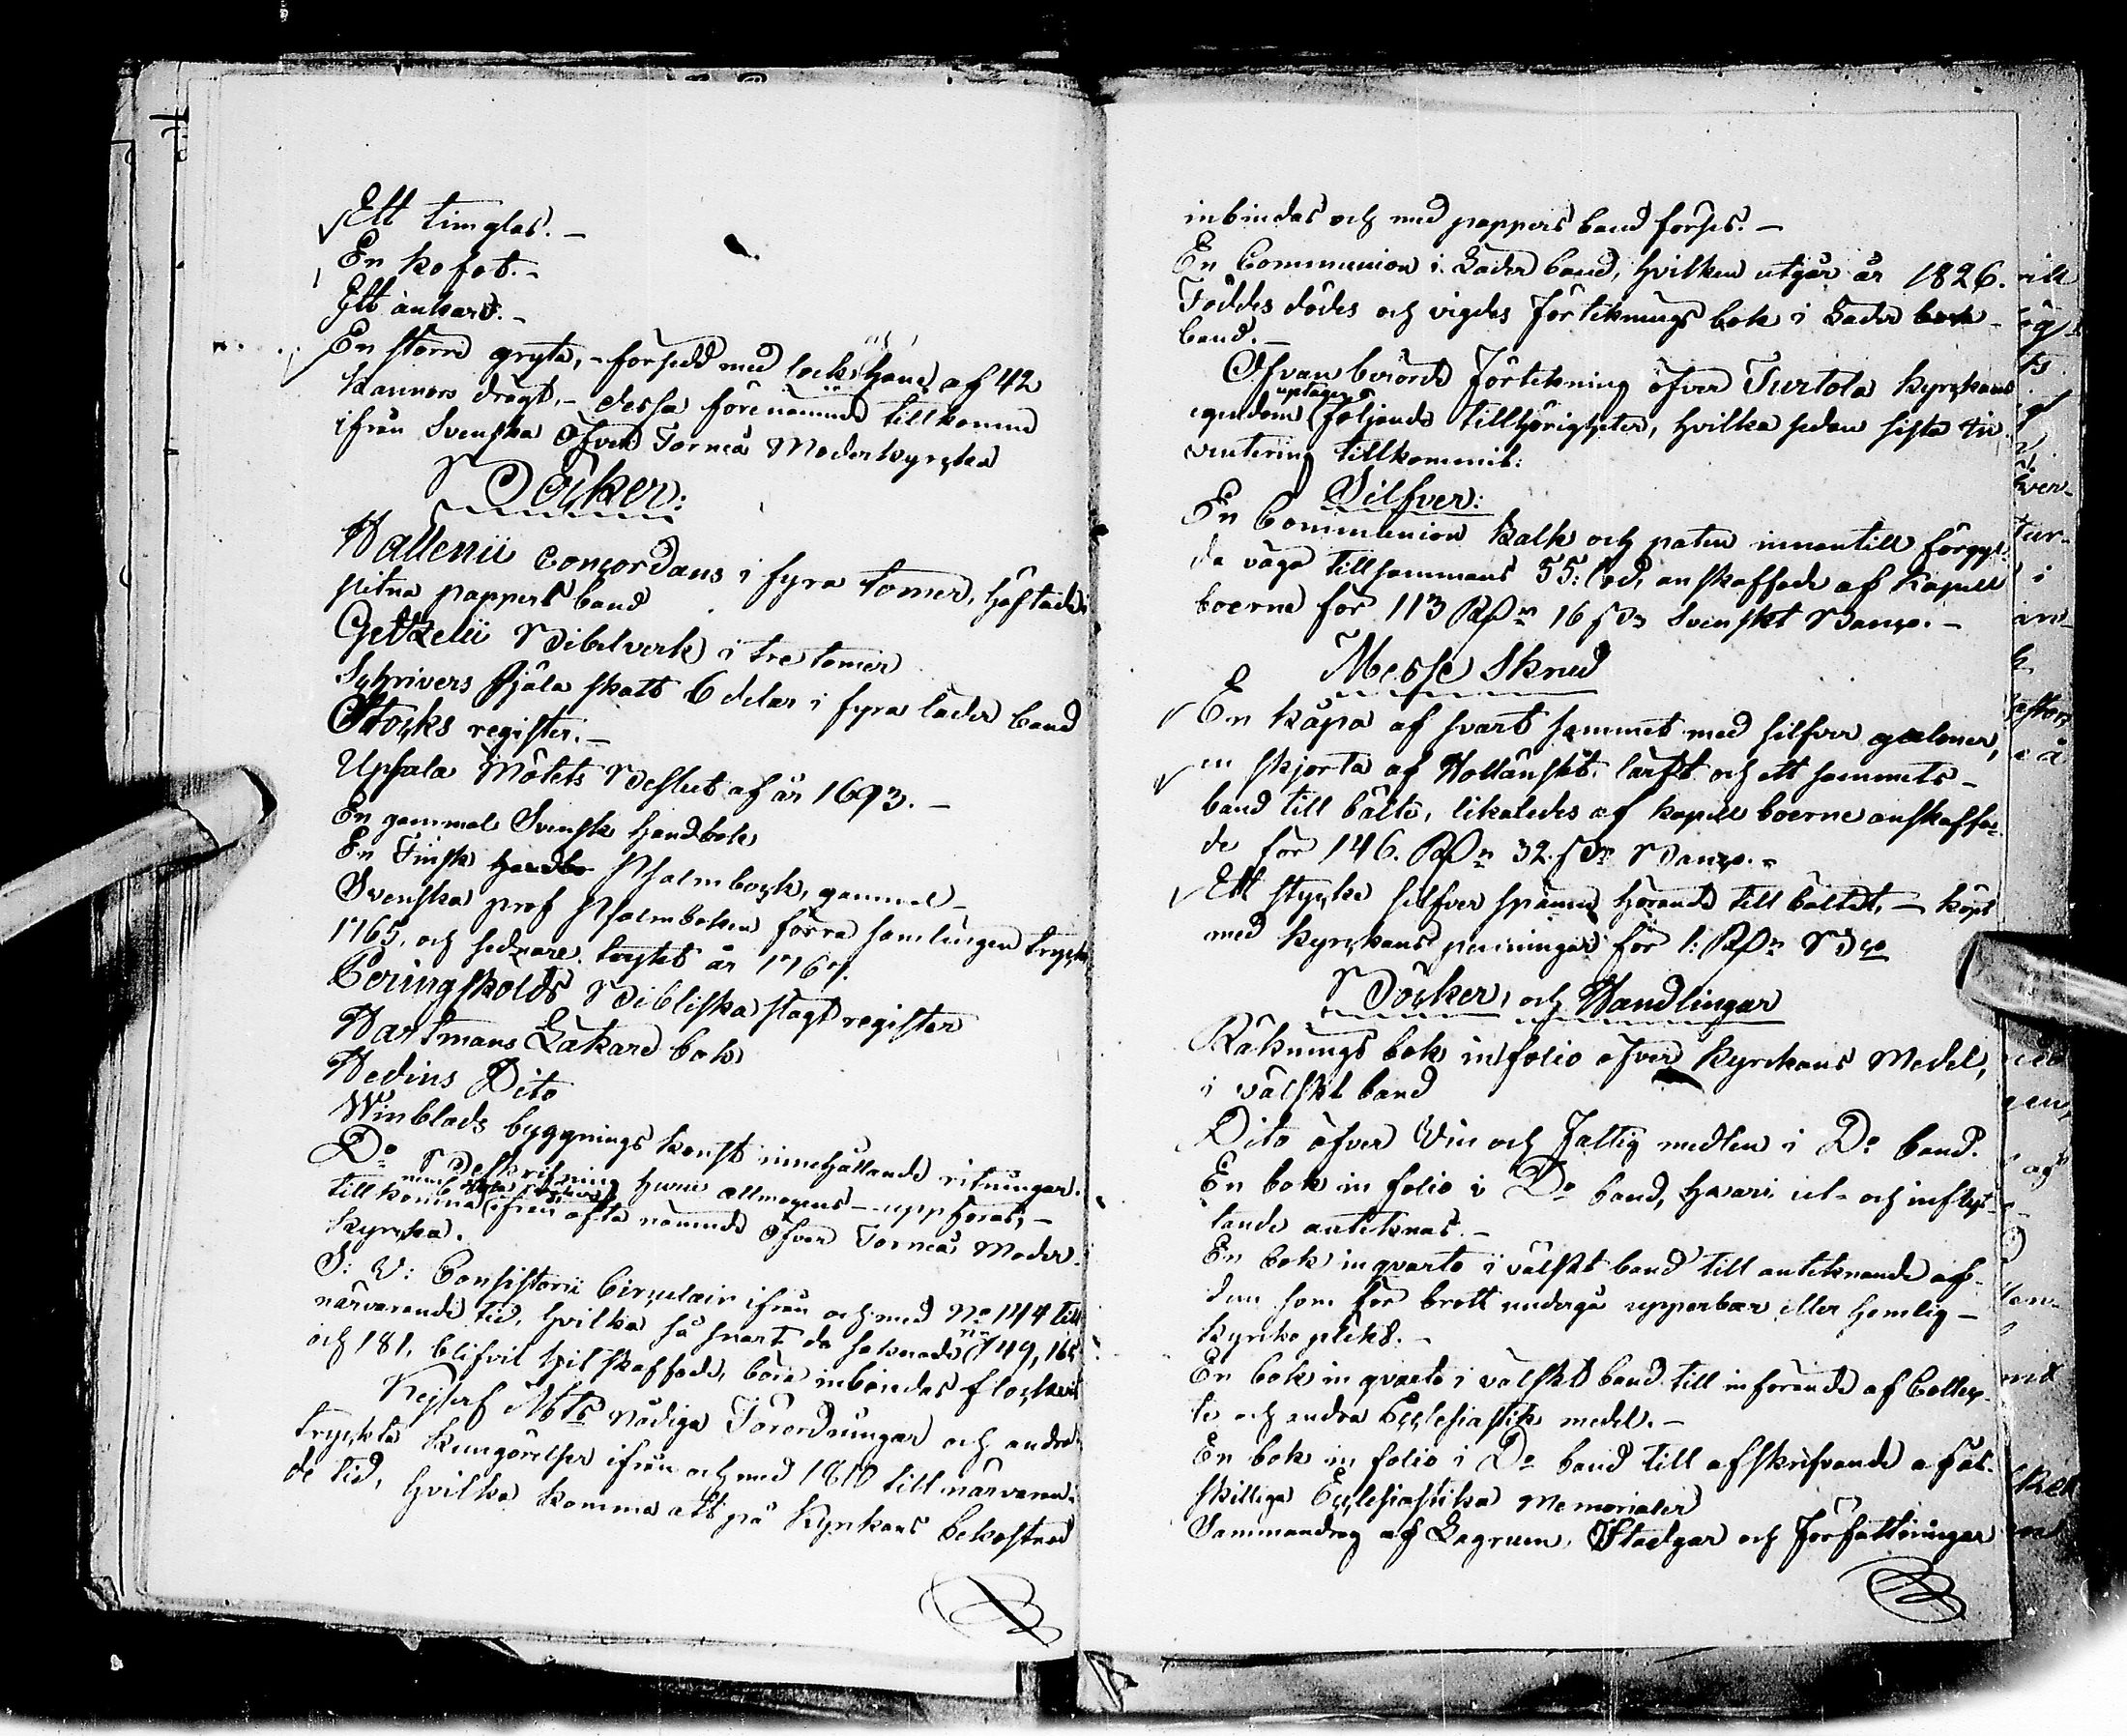 Ett timglas. -
En kofot. -
Ett ankare. -
En större gryta, - försedd med lock och hank af 42
kannors drägt, - dessa förenämnde tillkomne
ifrån Svenska Öfver Torneå Moderkyrcka
Böcker:
Hallenii Concordans i fyra tomer, häftade i
slitna pappers band
Getzelii Bibelverk i tre tomer
Schrivers Själa skatt 6 delar i fyra läder band
Stocks register. -
Upsala Mötets Beslut af år 1693. -
En gammal Svensk handbok
En Finsk handbo Psalmbock, gammal -
Svenska prof Psalmboken förra samlingen tryckt
1765, och sednare tryckt år 1767.
Peringskölds Bibliska slägt register
Hartmans Läkare bok
Hedins Dito
Winblads byggnings konst innehållande ritningar.
Do Beskrifning huru allmogens - uppföras, -
tillkomna ifrån ofta nämnde Öfver Torneå Moder-
kyrcka.
S: V: Consistorii Circulair ifrån och med No 144 till
närvarande tid, hvilka så snart de saknade No 149, 165
och 181, blifvit tilskaffade, böra inbindas
Kejserl. Mts Nådiga Förordningar och andra
tryckta kungörelser ifrån och med 1810 till närvaran-
de tid, hvilka komma att på Kyrkans bekostnad
inbindas och med pappers band förses. -
En Communion i Läder band, hvilken utgår år 1826.
Föddes dödes och vigdes Förteknings bok i Läder bok -
band. -
Ofvanberörde Förtekning öfver Turtola kyrckans
egendom uptager följande tillhörigheter, hvilka sedan sista In-
ventering tillkommit:
Silfver:
En Communion Kalk och paten innantill förgyl-
da väga tillsammans 55: lod, anskaffade af Kapell
boerne för 113 RDr 16 s Dr Svenskt Banco. -
Messe Skrud
En kåpa af svart sammet med silfver galoner,
en skjorta af Hollänskt lärft och ett sammets -
band till bälte, likaledes af kapell boerne anskaffa-
de för 146. RDr 32. s Dr Banco. -
Ett stycke silfver spänne hörande till bältet, - köpt
med kyrckans penningar för 1: RDr Bco
Böcker, och Handlingar
Räknings bok in folio öfver Kyrckans Medel,
i välskt band
Dito öfver Vin och Fattig medlen i Do band.
En bok in folio i Do band, hvari ut- och inflyt-
tande anteknas. -
En bok in qvarto i välskt band till anteknande af
dem som för brott undergå uppenbar eller hemlig -
kyrko plikt. -
En bok in qvarto i välskt band till införande af Collec-
ter och andra Ecclesiastik medel. -
En bok in folio i Do band till afskrifvande af åt-
skilliga Ecclesiastika Memorialer
Sammandrag af Lagrum, Stadgar och Författningar